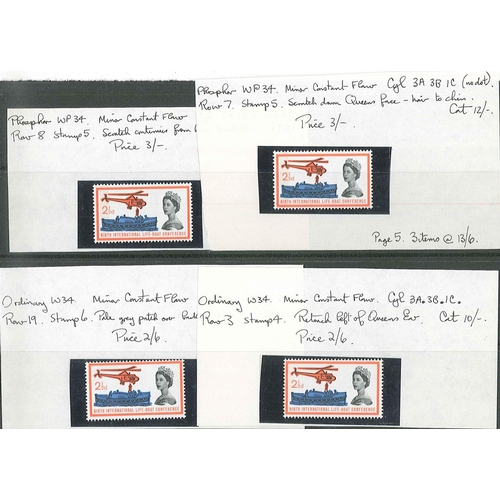 Phosphor WP34. Minor Constant Flaw
Row 8 Stamp 5. Scratch continues from
Price 3/-
2½d
NINTH INTERNATIONAL LIFE-BOAT CONFERENCE
Phosphor WP34. Minor Constant Flaw Cyl 3A 3B 1C (no dot)
Row 7. Stamp 5. Scratch down Queens face - hair to chin.
Cat 12/-
Price 3/-
2½d
NINTH INTERNATIONAL LIFE-BOAT CONFERENCE
Page 5. 3 items @ 13/6.
Ordinary W34. Minor Constant Flaw
Row 19. Stamp 6. Pale grey patch over
Price 2/6
2½d
NINTH INTERNATIONAL LIFE-BOAT CONFERENCE
Ordinary W34. Minor Constant Flaw. Cyl 3A.3B.1C.
Row 3 Stamp 4. Retouch left of Queens Ear. Cat 10/-
Price 2/6.
2½d
NINTH INTERNATIONAL LIFE-BOAT CONFERENCE